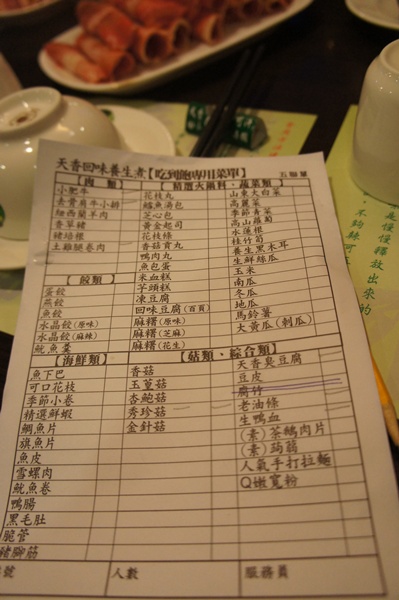 天香回味養生煮【吃到飽專用菜單】 五聯單
【肉　類】
小肥牛
去骨肩牛小排
紐西蘭羊肉
香草豬
豬培根
土雞腿卷肉
【餃類】
蛋餃
燕餃
魚餃
水晶餃(原味)
水晶餃(麻辣)
魷魚蛋
【精選火鍋料、蔬菜類】
花枝丸
鱈魚湯包
芝心包
黃金起司
花枝條
香菇貢丸
鴨肉丸
魚包蛋
米血糕
芋頭糕
凍豆腐
回味豆腐(百頁)
麻糬(原味)
麻糬(芝麻)
麻糬(花生)
山東大白菜
高麗菜
季節青菜
高山蘿蔔
水蓮根
桂竹筍
養生黑木耳
生鮮絲瓜
玉米
南瓜
冬瓜
地瓜
馬鈴薯
大黃瓜(刺瓜)
【海鮮類】
魚下巴
可口花枝
季節小卷
精選鮮蝦
鯛魚片
旗魚片
魚皮
雪螺肉
魷魚卷
鴨腸
黑毛肚
脆管
豬腳筋
【菇類、綜合類】
香菇
玉蕈菇
杏鮑菇
秀珍菇
金針菇
天香臭豆腐
豆皮
腐竹
老油條
生鴨血
(素)茶鵝肉片
(素)蒟蒻
人氣手打拉麵
Q嫩寬粉
號
人數
服務員
是慢慢釋放出來的
不夠辣可